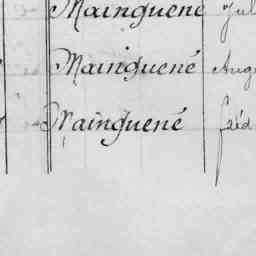 Mainguené Jul
Mainguené Aug
Mainguené fréd